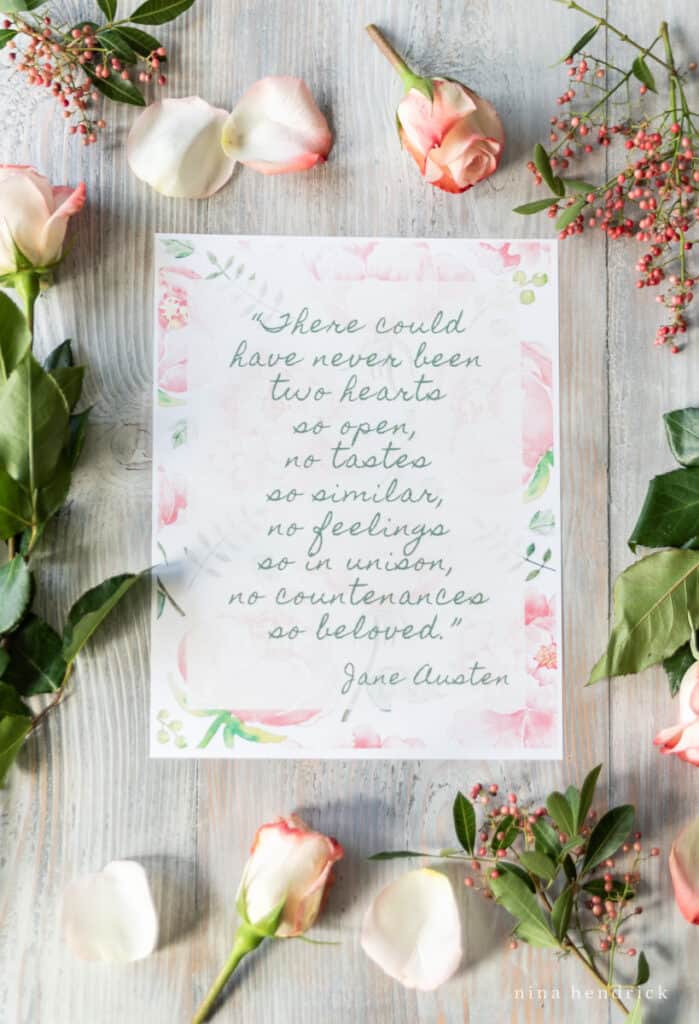 “There could
have never been
two hearts
so open,
no tastes
so similar,
no feelings
so in unison,
no countenances
so beloved.”
Jane Austen
nina hendrick